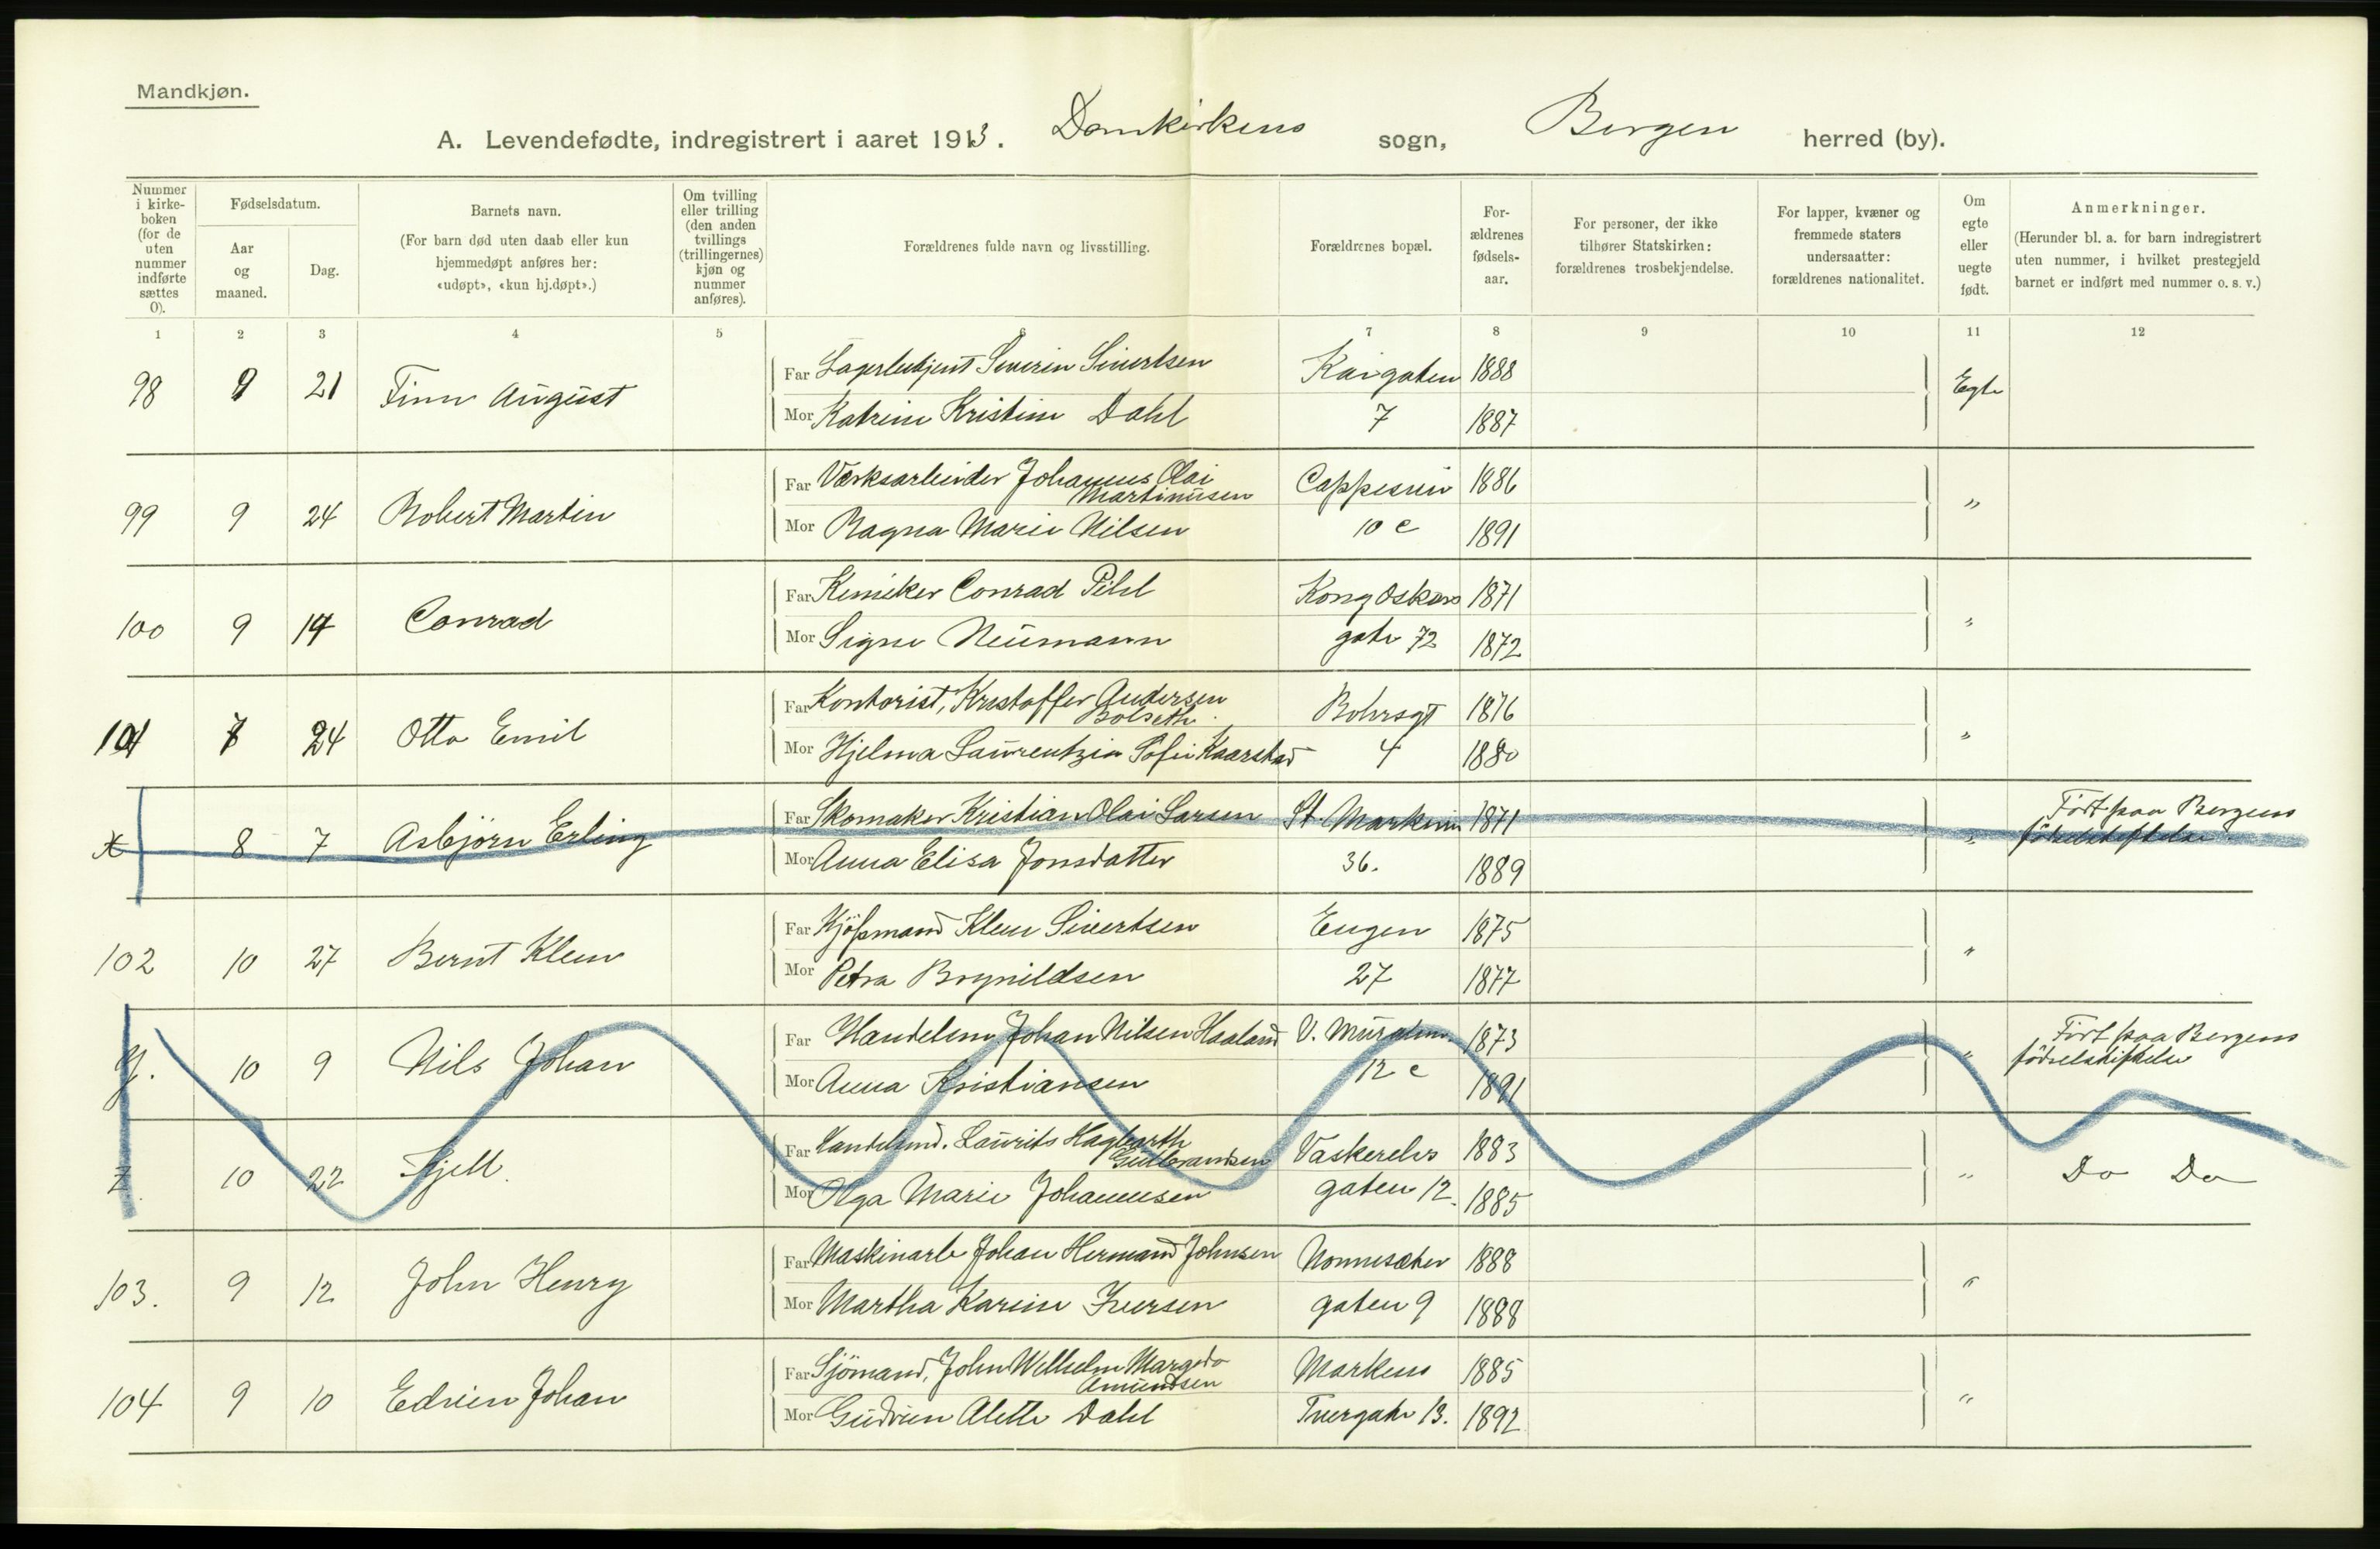 Mandkjøn.
A. Levendefødte, indregistrert i aaret 1913. Domkirkens sogn, Bergen herred (by).
Nummer i kirke-boken (for de uten nummer indførte sættes 0).
Fødselsdatum.
Aar og maaned.
Dag.
Barnets navn.
(For barn død uten daab eller kun hjemmedøpt anføres her: «udøpt», «kun hj.døpt».)
Om tvilling eller trilling (den anden tvillings (trillingernes) kjøn og nummer anføres).
Forældrenes fulde navn og livsstilling.
Forældrenes bopæl.
For-ældrenes fødsels-aar.
For personer, der ikke tilhører Statskirken: forældrenes trosbekjendelse.
For lapper, kvæner og fremmede staters undersaatter: forældrenes nationalitet.
Om egte eller uegte født.
Anmerkninger.
(Herunder bl. a. for barn indregistrert uten nummer, i hvilket prestegjeld barnet er indført med nummer o. s. v.)
1 2 3 4 5 6 7 8 9 10 11 12
Far Lagerbetjent Severin Sivertsen Kaigaten 1888
98 9 21 Finn August Egte
Mor Katrine Kristine Dahl 7 1887
Far Værksarbeider Johannes Olai Martinusen Cappesvei 1886
99 9 24 Robert Martin "
Mor Ragna Marie Nilsen 10 c 1891
Far Kemiker Conrad Pihl Kong Oskars 1871
100 9 14 Conrad "
Mor Signe Neumann gate 72 1872
Far Kontorist, Kristoffer Andersen Bolseth Bohrsgt 1876
101 7 24 Otto Emil "
Mor Hjelma Laurentzia Sofie Kaarstad 4 1880
Far Skomaker Kristian Olai Larsen St. Markevei 1871 Ført paa Bergens
X 8 7 Asbjörn Erling " födselsstiftelse
Mor Anna Elisa Jonsdatter 36. 1889
Far Kjöpmand Klem Sivertsen Engen 1875
102 10 27 Bernt Klem "
Mor Petra Brynildsen 27 1877
Far Handelsm Johan Nilsen Haaland V. Muralm. 1873 Ført paa Bergens
Y. 10 9 Nils Johan " födselsstiftelse
Mor Anna Kristiansen 12 c 1891
Far Handelsmd. Laurits Hagbarth Gulbrandsen Vaskerelvs 1883
Z. 10 22 Kjell. " Do Do
Mor Olga Marie Johannesen gaten 12. 1885
Far Maskinarb Johan Hermand Johnsen Nonnesæter 1888
103. 9 12 John Henry "
Mor Martha Karine Iversen gaten 9 1888
Far Sjömand, John Wilhelm Margido Amundsen Markens 1885
104 9 10 Edvien Johan "
Mor Gudrun Alette Dahl Tvergate 13. 1892